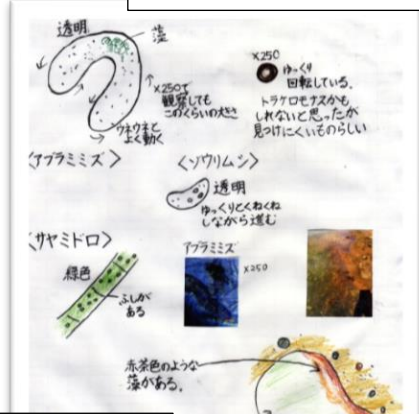 透明
藻
×250で
観察しても
このくらいの大きさ
ウネウネと
よく動く
×250
ゆっくり
回転している。
トラケロモナスかも
しれないと思ったが
見つけにくいものらしい
〈アブラミミズ〉
〈ゾウリムシ〉
透明
ゆっりとくねくね
しながら進む
〈サヤミドロ〉
緑色
ふしが
ある
アブラミミズ
×250
赤茶色のような
藻がある。